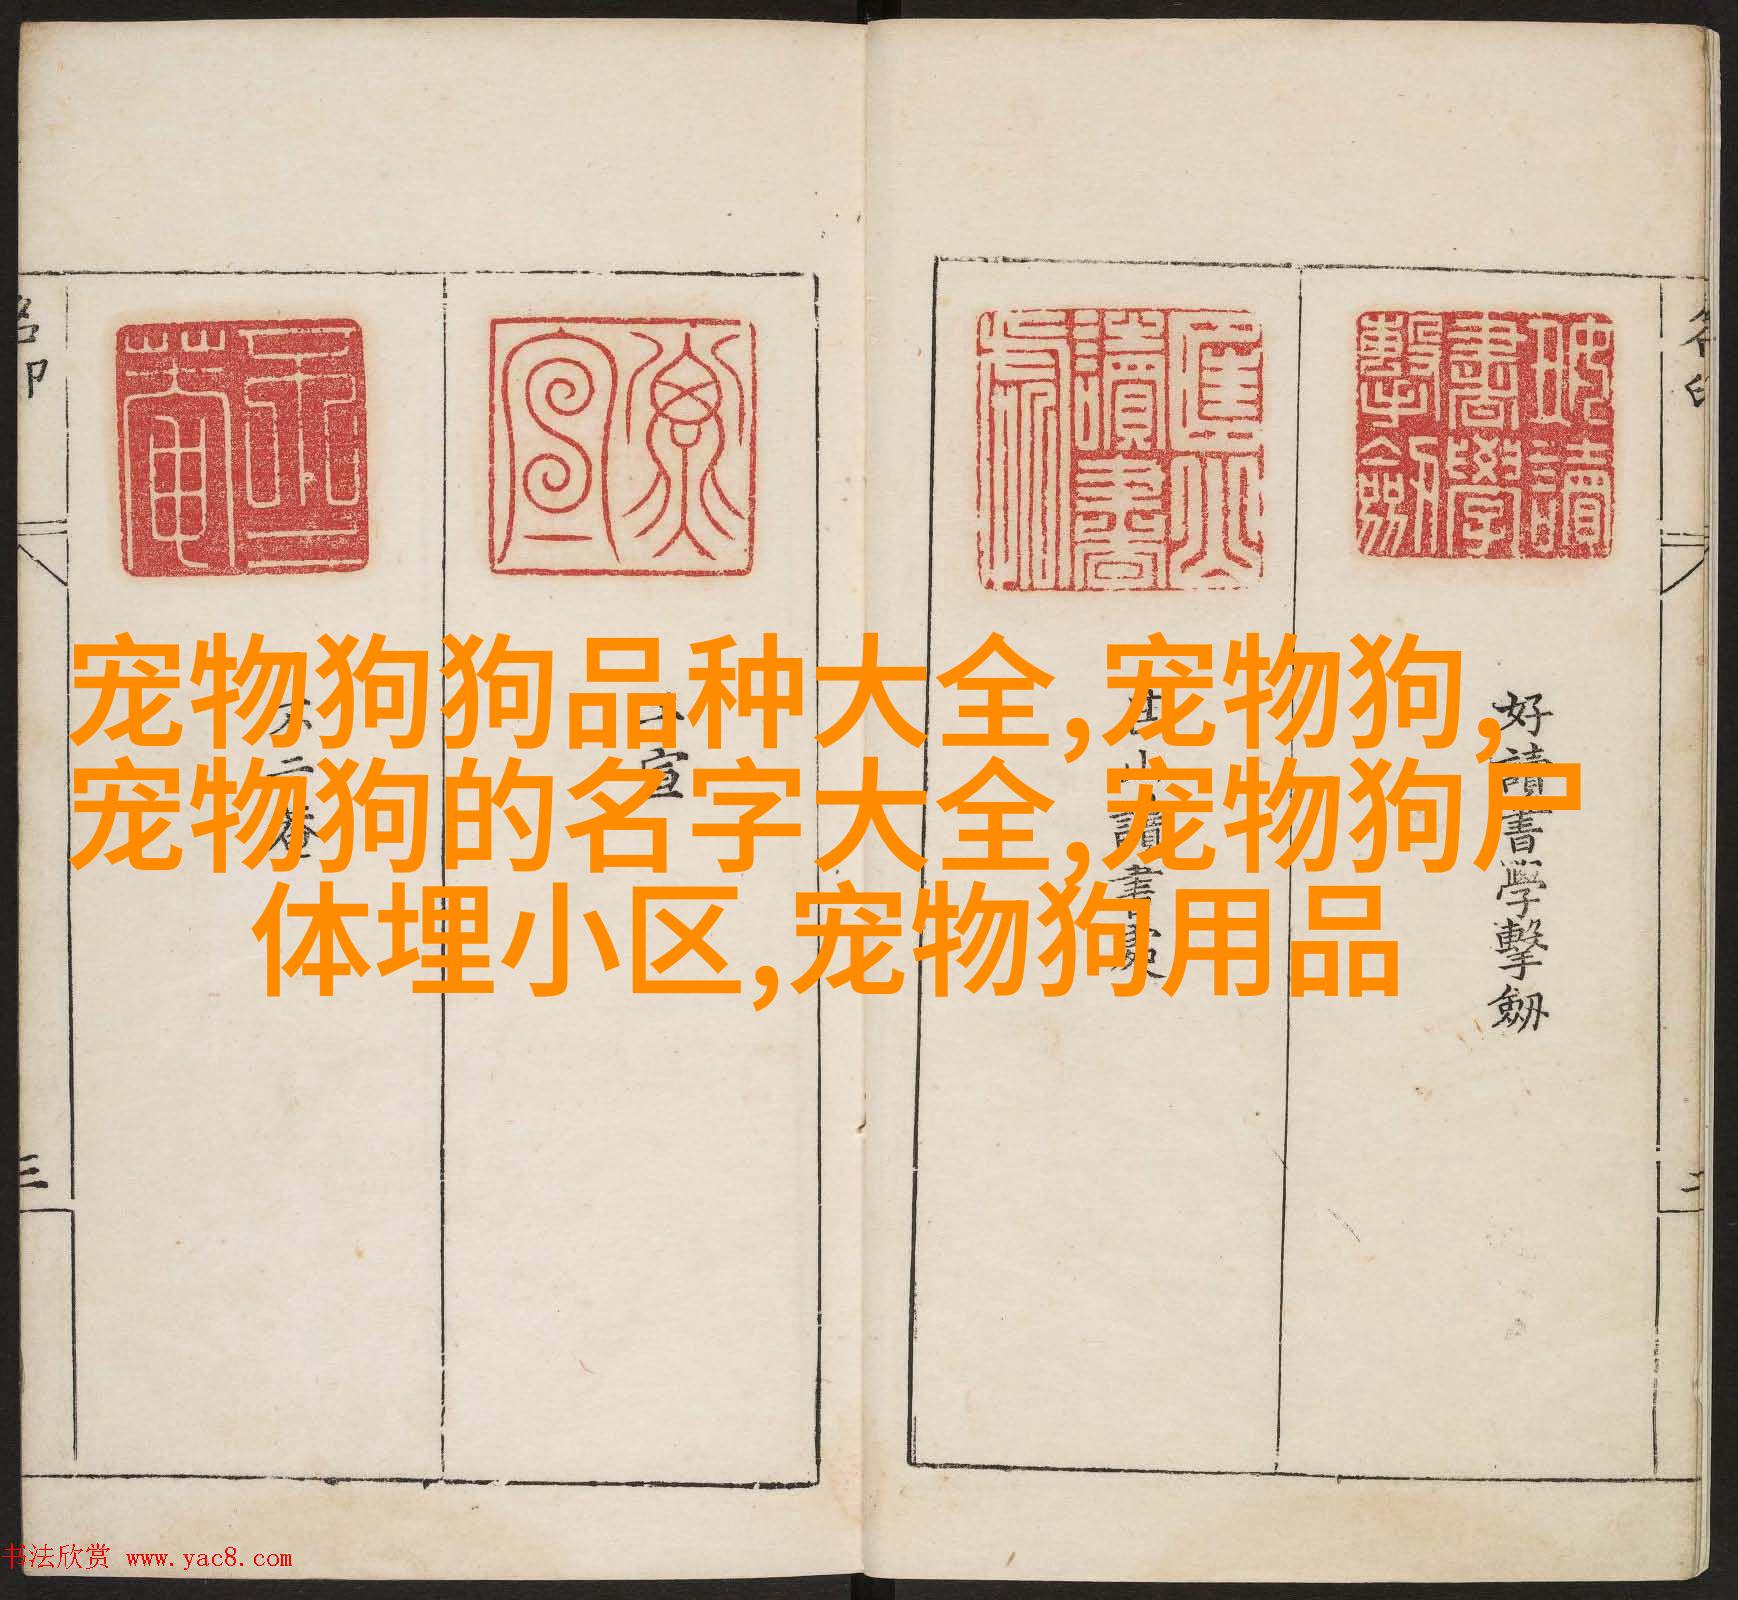 宠物狗狗品种大全,宠物狗,
宠物狗的名字大全,宠物狗尸
体埋小区,宠物狗用品
好讀書學擊劒
讀書處
一宣
不二菴
三
书法欣赏 www.yac8.com